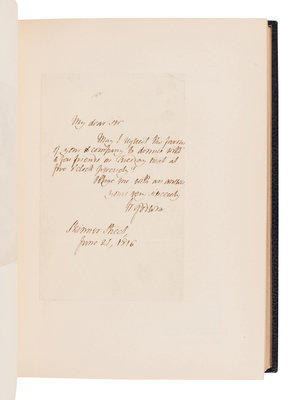 My dear Sir
May I request the favour
of your company to dinner with
a few friends on Tuesday next at
five o'clock precisely?
Favour me with an answer
yours very sincerely
W Godwin
Skinner Street,
June 21, 1816